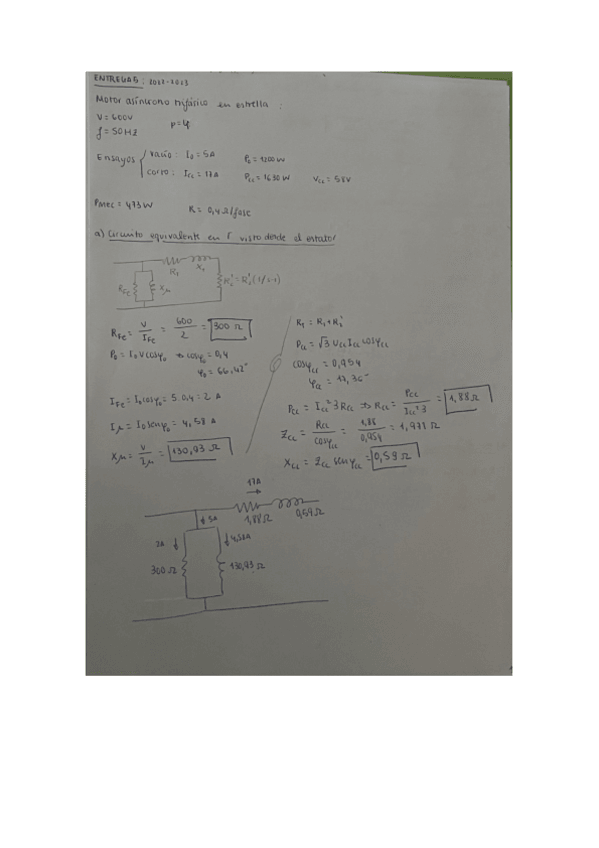 ENTREGA 5: 2022-2023
Motor asíncrono trifásico en estrella :
V = 600V
p=4
f = 50HZ
Ensayos
vacío : I0 = 5A P0 = 1200W
corto : Icc = 17A Pcc = 1630W Vcc = 58V
Pmec = 473W R = 0,4Ω/fase
a) Circuito equivalente en Γ visto desde el estator
R1 X1
RFe Xμ R'c = R'2 (1/s-1)
RFe = V/IFe = 600/2 = 300Ω
P0 = I0 V cosφ0 → cosφ0 = 0,4
φ0 = 66,42°
IFe = I0 cosφ0 = 5·0,4 = 2 A
Iμ = I0 senφ0 = 4,58 A
Xμ = V/Iμ = 130,93 Ω
R1 = R1 + R2'
Pcc = √3 Vcc Icc cosφcc
cosφcc = 0,954
φcc = 17,36°
Pcc = Icc² 3 Rcc → Rcc = Pcc/Icc²·3 = 1,88Ω
Zcc = Rcc/cosφcc = 1,88/0,954 = 1,971Ω
Xcc = Zcc senφcc = 0,59Ω
17A
1,88Ω 0,59Ω
5A
2A 4,58A
300Ω 130,93Ω